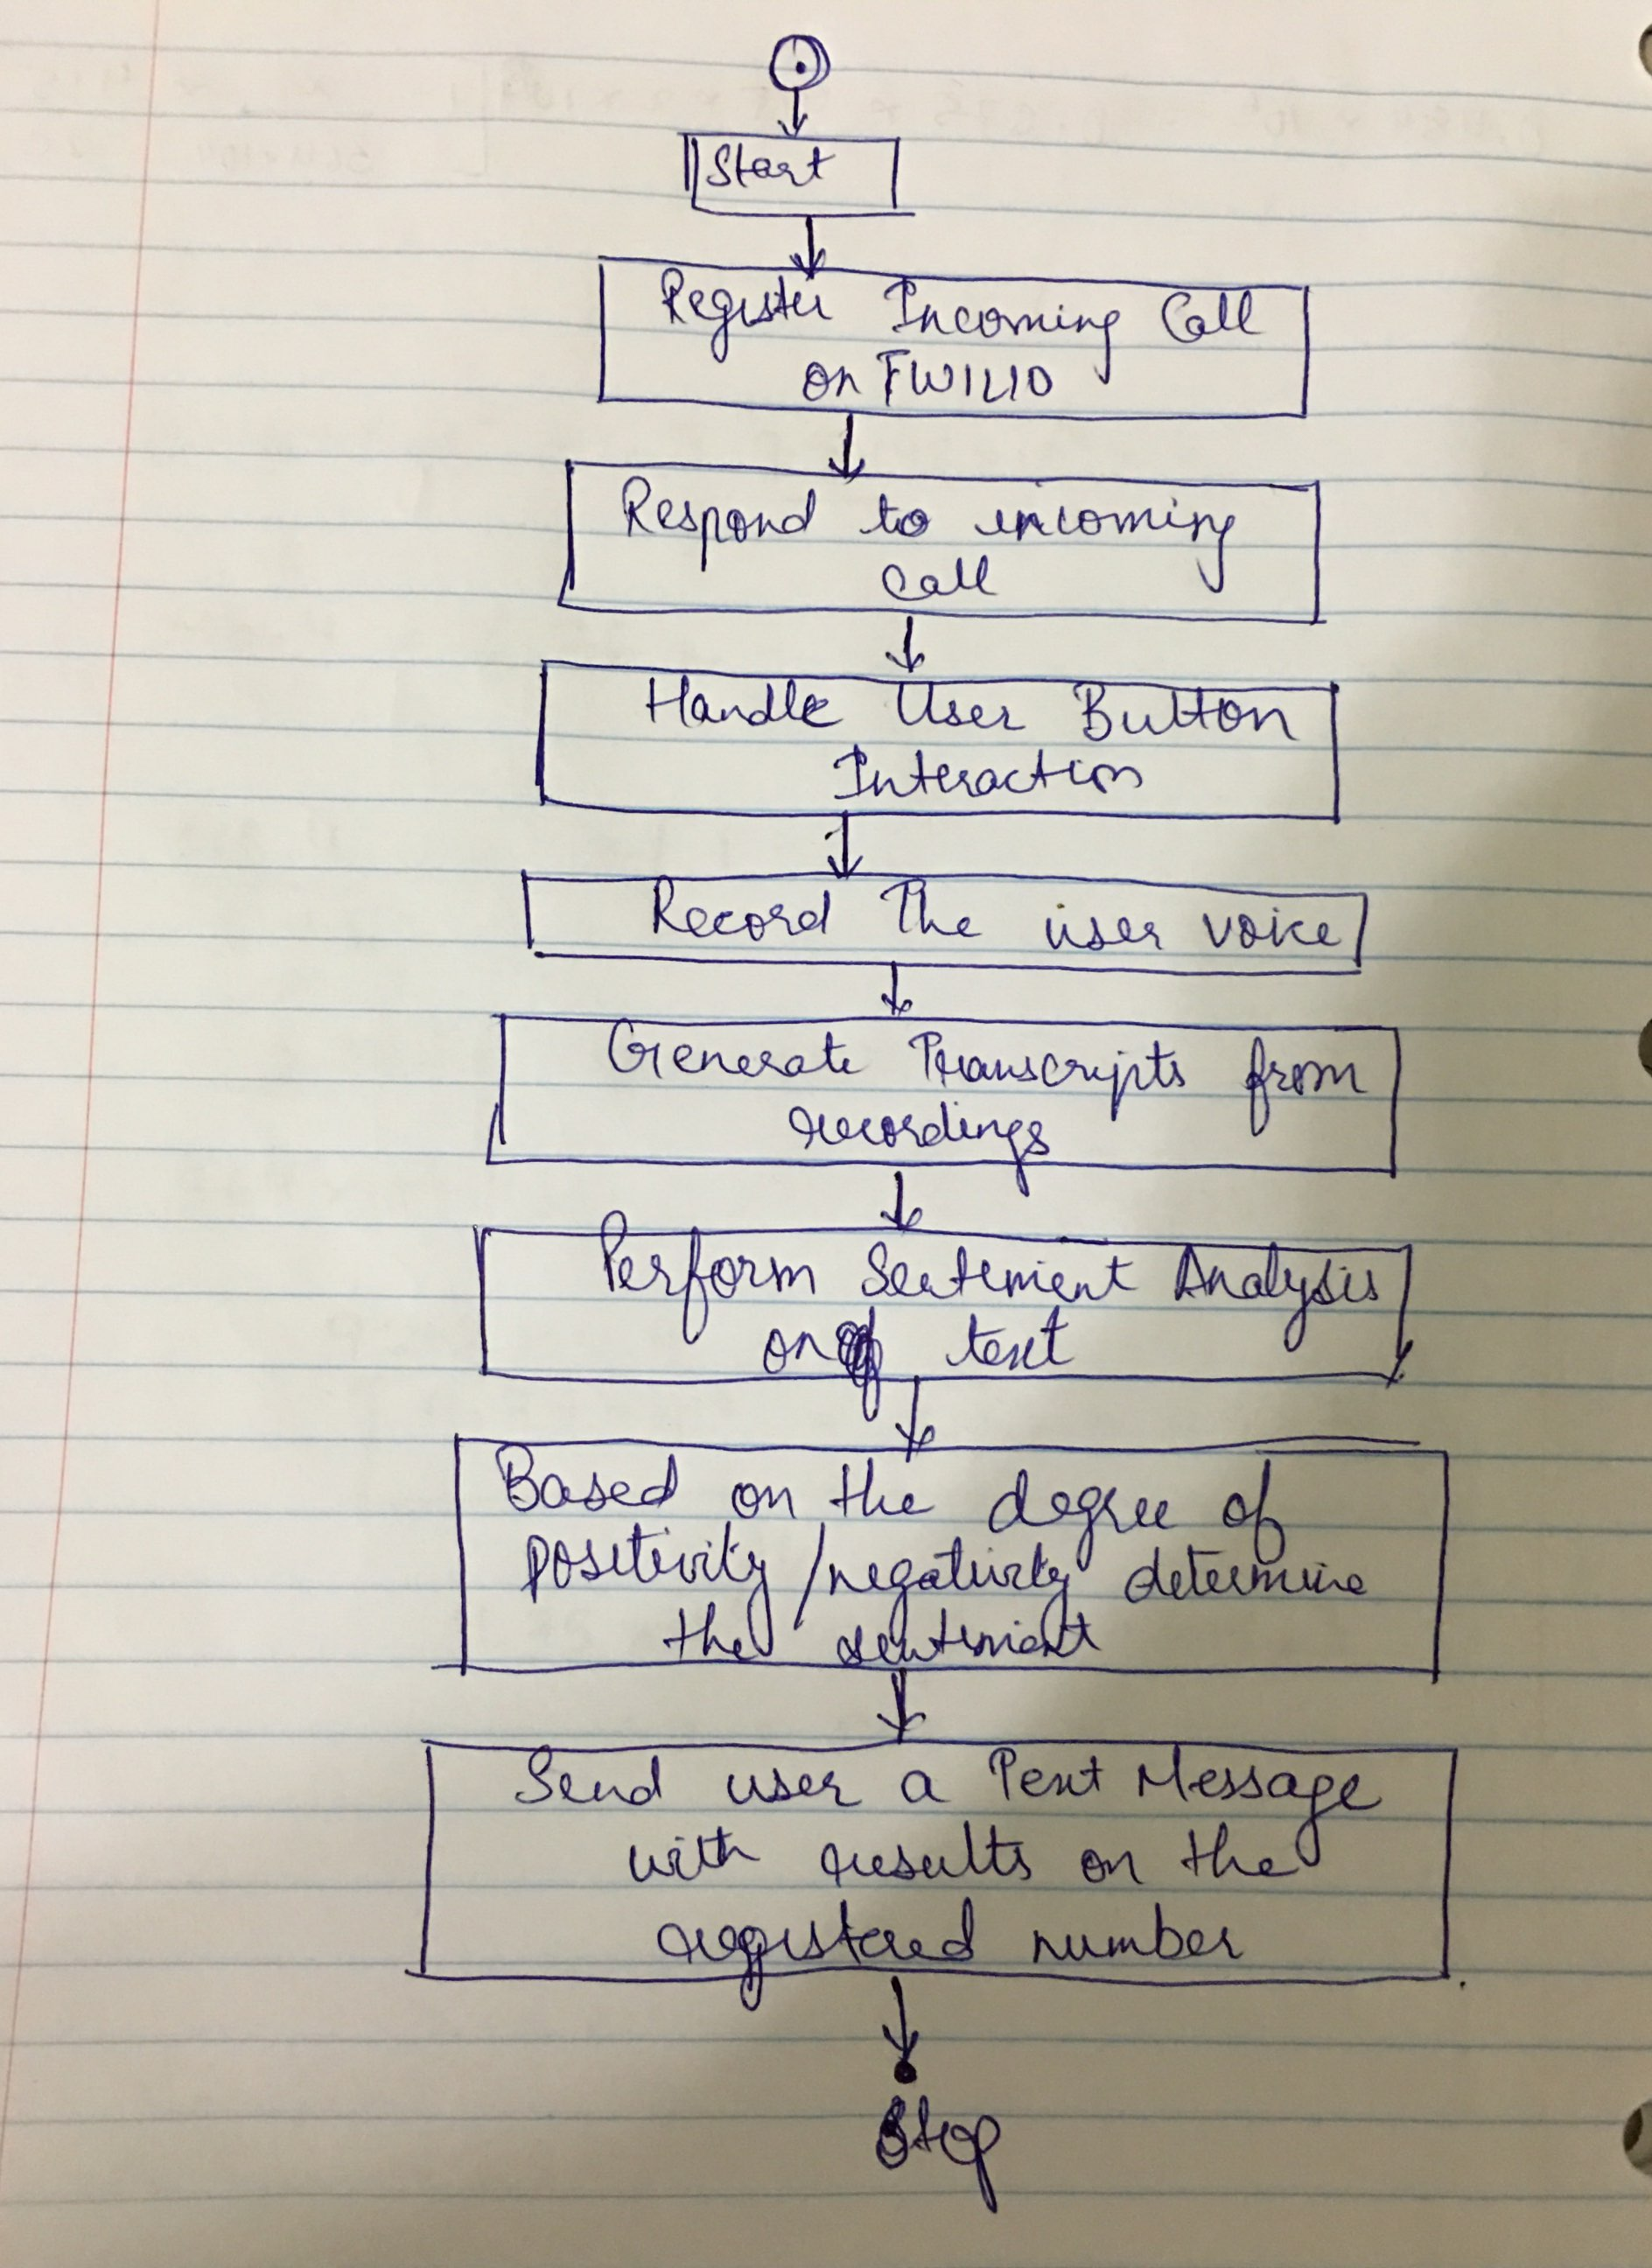 Start
Register Incoming Call
on TWILIO
Respond to incoming
Call
Handle User Button
Interaction
Record The user voice
Generate Transcripts from
recordings
Perform Sentiment Analysis
on text
Based on the degree of
positivity/negativity determine
the sentiment
Send user a Text Message
with results on the
registered number
Stop